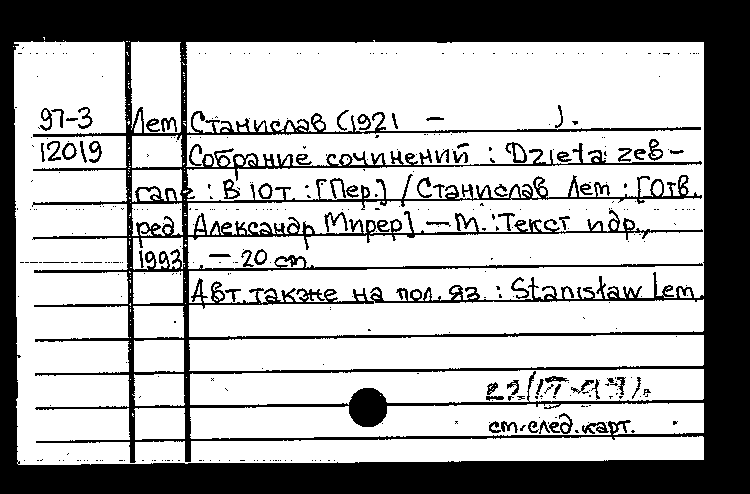 97-3 Лем, Станислав (1921 - ).
12019 Собрание сочинений : Dzieła zeb-
rane : В 10т. : [Пер.] / Станислав Лем ; [Отв.
ред. Александр Мирер]. — М. : Текст и др.,
1993 . — 20 см.
Авт. также на пол. яз. : Stanisław Lem.
см. след. карт.